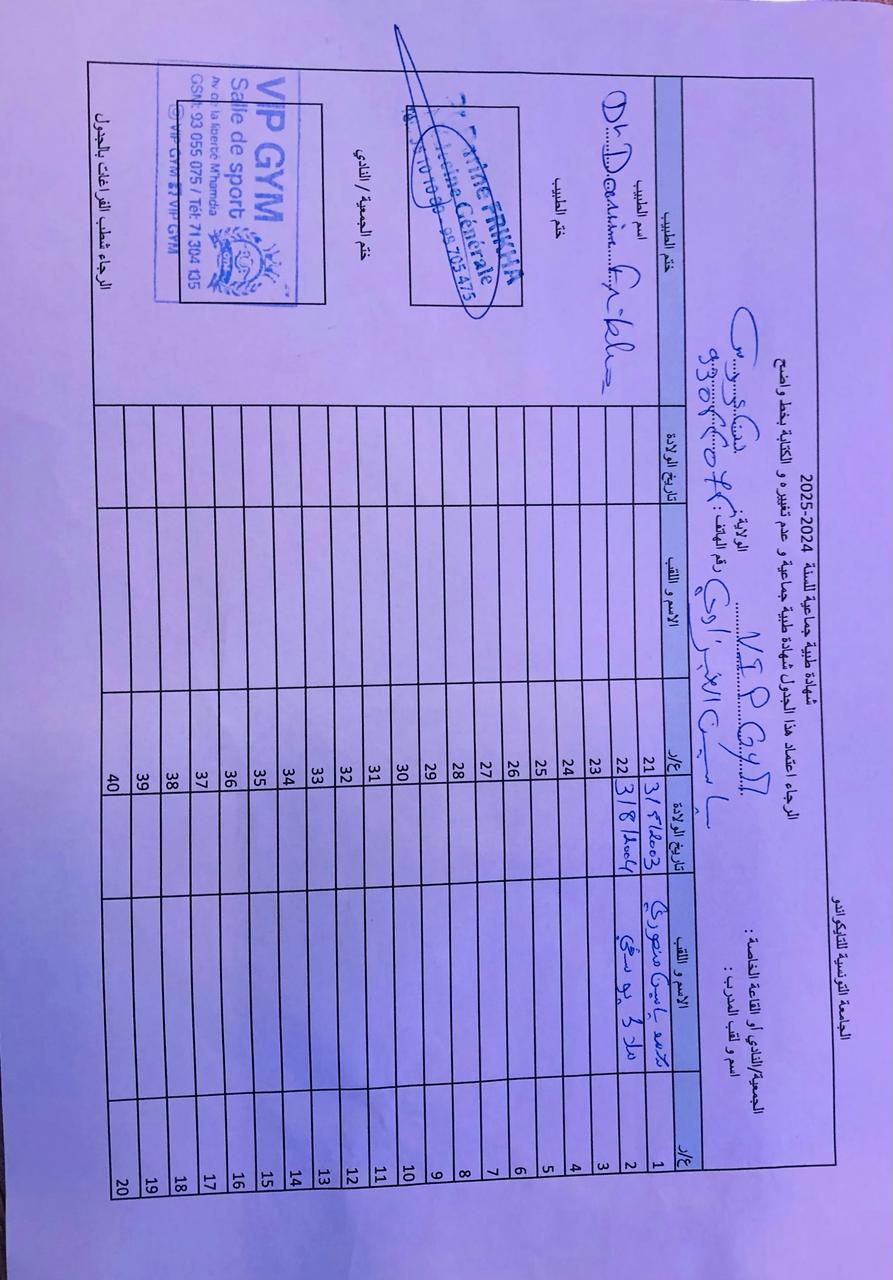 الجامعة التونسية للتايكواندو
شهادة طبية جماعية للسنة 2024-2025
الرجاء اعتماد هذا الجدول شهادة طبية جماعية و عدم تغييره و الكتابة بخط واضح
الجمعية/النادي أو القاعة الخاصة : V.I.P GYM الولاية :
اسم و لقب المدرب : ياسين رقم الهاتف :
ع/ر الاسم و اللقب تاريخ الولادة ع/ر الاسم و اللقب تاريخ الولادة ختم الطبيب
1 محمد ياسين منصوري 3/5/2003 21
2 يوسفي 3/8/2004 22
3 23
4 24
5 25
6 26
7 27
8 28
9 29
10 30
11 31
12 32
13 33
14 34
15 35
16 36
17 37
18 38
19 39
20 40
اسم الطبيب
Dr Dorrine Frikha
ختم الطبيب
FRIKHA
Générale
98 705 475
ختم الجمعية / النادي
VIP GYM
Salle de sport
Av de la liberté M'hamdia
GSM: 93 055 075 / Tél: 71 304 135
VIP GYM VIP GYM
الرجاء شطب الفراغات بالجدول